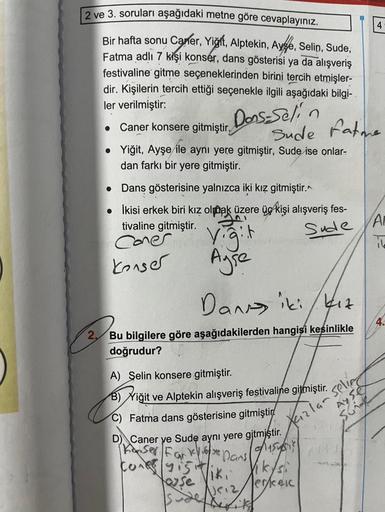 2 ve 3. soruları aşağıdaki metne göre cevaplayınız.
4
Bir hafta sonu Caner, Yiğit, Alptekin, Ayşe, Selin, Sude,
Fatma adlı 7 kişi konser, dans gösterisi ya da alışveriş
festivaline gitme seçeneklerinden birini tercih etmişler-
dir. Kişilerin tercih ettiği seçenekle ilgili aşağıdaki bilgi-
ler verilmiştir:
Dans=Selin
• Caner konsere gitmiştir.
Sude Fatma
• Yiğit, Ayşe ile aynı yere gitmiştir, Sude ise onlar-
dan farkı bir yere gitmiştir.
• Dans gösterisine yalnızca iki kız gitmiştir.
• İkisi erkek biri kız olmak üzere üç kişi alışveriş fes-
tivaline gitmiştir.
Aynı
Caner Yiğit Sude
Konser Ayşe
Dans → iki kız
2. Bu bilgilere göre aşağıdakilerden hangisi kesinlikle
doğrudur?
4.
A) Selin konsere gitmiştir.
B) Yiğit ve Alptekin alışveriş festivaline gitmiştir.
C) Fatma dans gösterisine gitmiştir.
Kızlar Selin
Ayşe
Sude
D) Caner ve Sude aynı yere gitmiştir.
Konser Dans
Caner iki ikisi
kız erkek
Sude